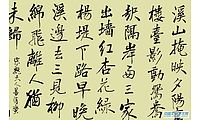 溪山掩映夕陽
樓臺影動鴛
隔岸兩三家
出墻紅杏花綠
楊堤下路早晚
溪邊去三見柳
綿飛離人猶
未歸